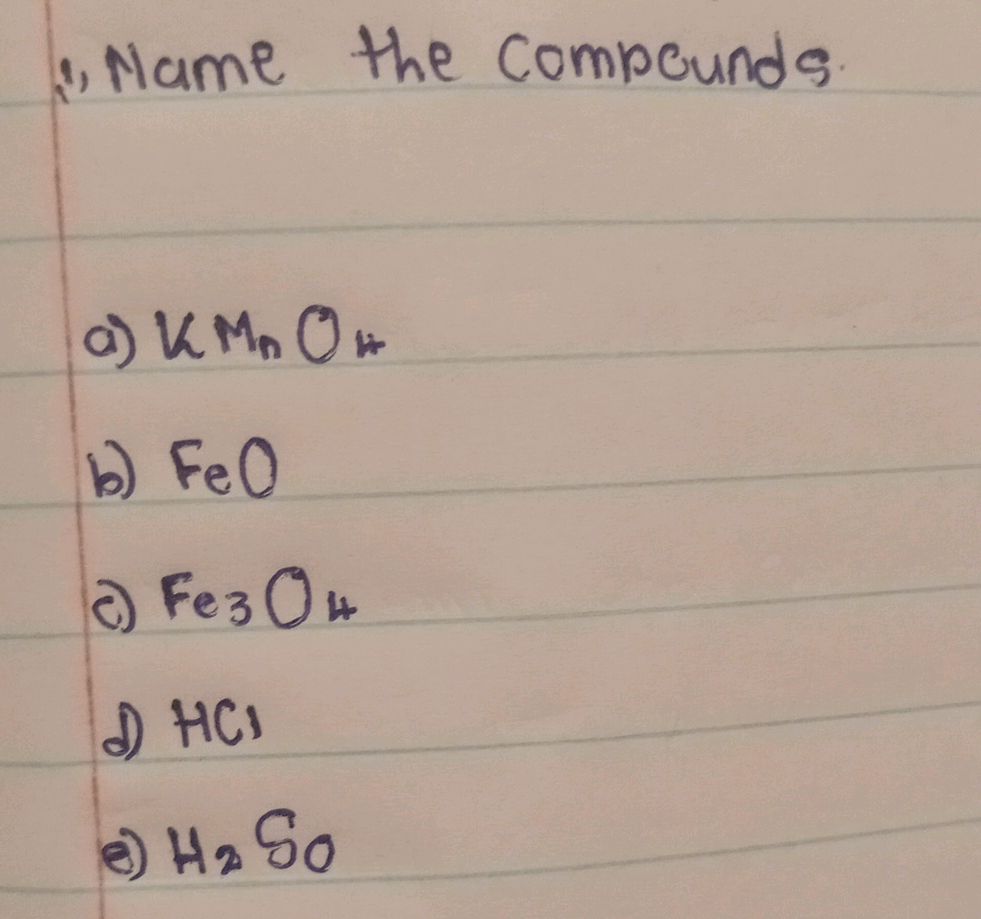 1, Name the Compounds.
a) KMnO4
b) FeO
c) Fe3O4
d) HCl
e) H2So